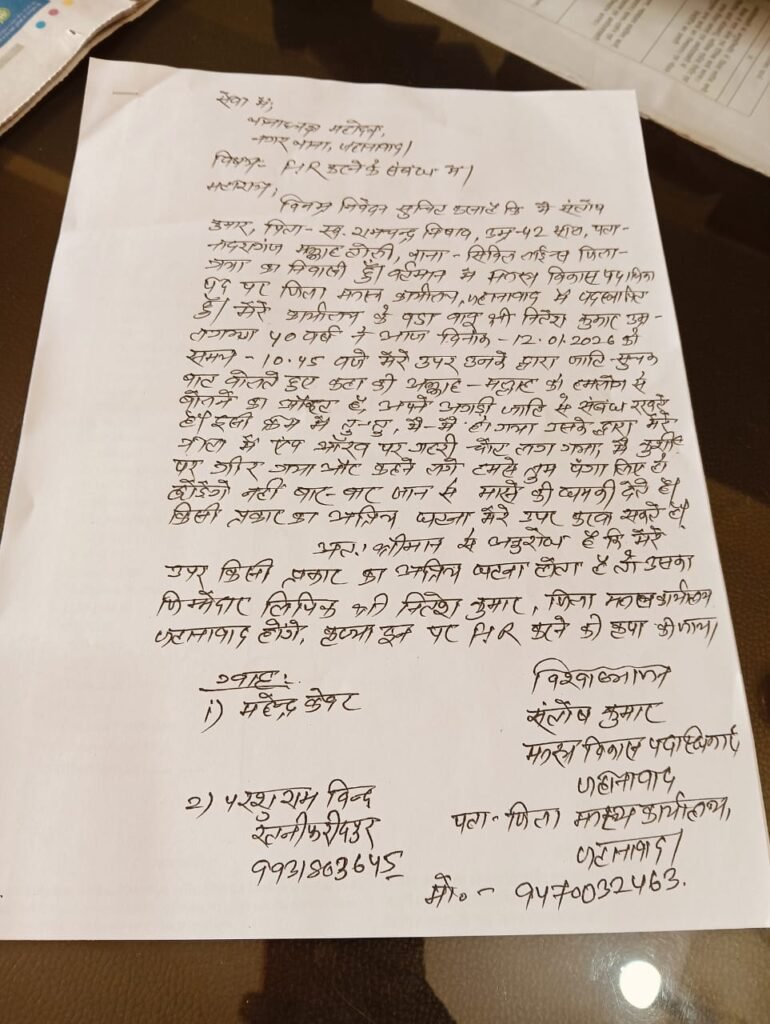 सेवा में,
थानाध्यक्ष महोदय,
नगर थाना, जहानाबाद।
विषय:- FIR करने के संबंध में।
महाशय,
विनम्र निवेदन सुचित करना है कि मैं संतोष
कुमार, पिता- स्व. रामचन्द्र निषाद, उम्र-42 साल, पता-
नादरागंज मल्लाह टोली, थाना- सिविल लाईन्स जिला-
गया का निवासी हूँ। वर्तमान में मत्स्य विकास पदाधिकारी
पद पर जिला मत्स्य कार्यालय, जहानाबाद में पदस्थापित
हूँ। मेरे कार्यालय के बड़ा बाबू श्री नितेश कुमार उम्र-
लगभग 40 वर्ष ने आज दिनांक - 12.01.2026 को
समय - 10.45 बजे मेरे उपर उनके द्वारा जाति-सुचक
बात बोलते हुए कहा की मल्लाह-मल्लाह को हमलोग से
बोलने का औकात है, अपने अगड़ी जाति से संबंध रखते
हैं। इसी क्रम में तु-तु, मैं-मैं हो गया उसके द्वारा मेरे
गाल में एवं आँख पर गहरी चोट लग गया, मैं कुर्सी
पर गीर गया और कहने लगे हमसे तुम पंगा लिए हो
छोडेंगे नहीं बार-बार जान से मारने की धमकी देते हैं।
किसी प्रकार का अप्रिय घटना मेरे उपर करवा सकते हैं।
अतः श्रीमान से अनुरोध है कि मेरे
उपर किसी प्रकार का अप्रिय घटना होता है तो उसका
जिम्मेदार लिपिक श्री नितेश कुमार, जिला मत्स्य कार्यालय
जहानाबाद होंगे, कृप्या इन पर FIR करने की कृपा की जाय।
गवाह:
1) महेन्द्र केवट
2) परशुराम विन्द
रतनी फरीदपुर
9931803645
विश्वासभाजन
संतोष कुमार
मत्स्य विकास पदाधिकारी,
जहानाबाद
पता- जिला मत्स्य कार्यालय,
जहानाबाद।
मो० - 9470032463.